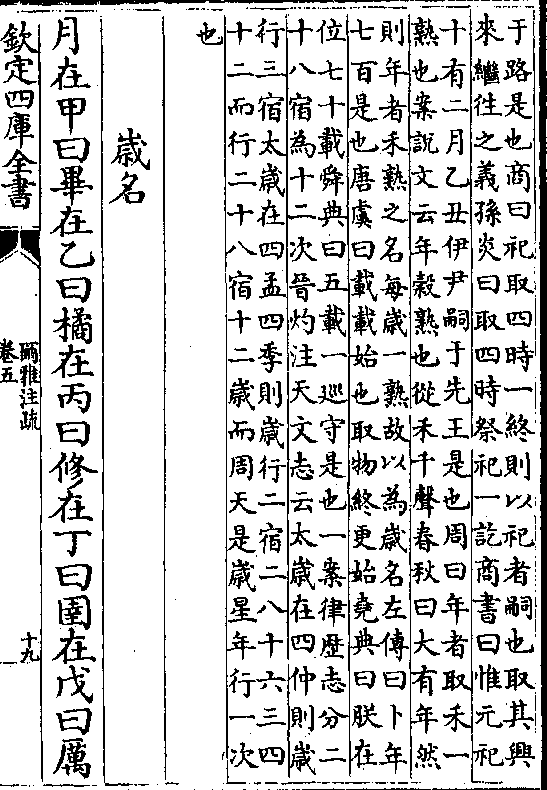 于路是也商曰祀取四時一終則以祀者嗣也取其興
來繼往之義孫炎曰取四時祭祀一訖商書曰惟元祀
十有二月乙丑伊尹嗣于先王是也周曰年者取禾一
熟也案說文云年穀熟也從禾千聲春秋曰大有年然
則年者禾熟之名每歲一熟故以為歲名左傳曰卜年
七百是也唐虞曰載載始也取物終更始堯典曰朕在
位七十載舜典曰五載一巡守是也一案律歷志分二
十八宿為十二次晉灼注天文志云太歲在四仲則歲
行三宿太歲在四孟四季則歲行二宿二八十六三四
十二而行二十八宿十二歲而周天是歲星年行一次
也
歲名
月在甲曰畢在乙曰橘在丙曰修在丁曰圉在戊曰厲
欽定四庫全書
爾雅注疏
卷五
十九